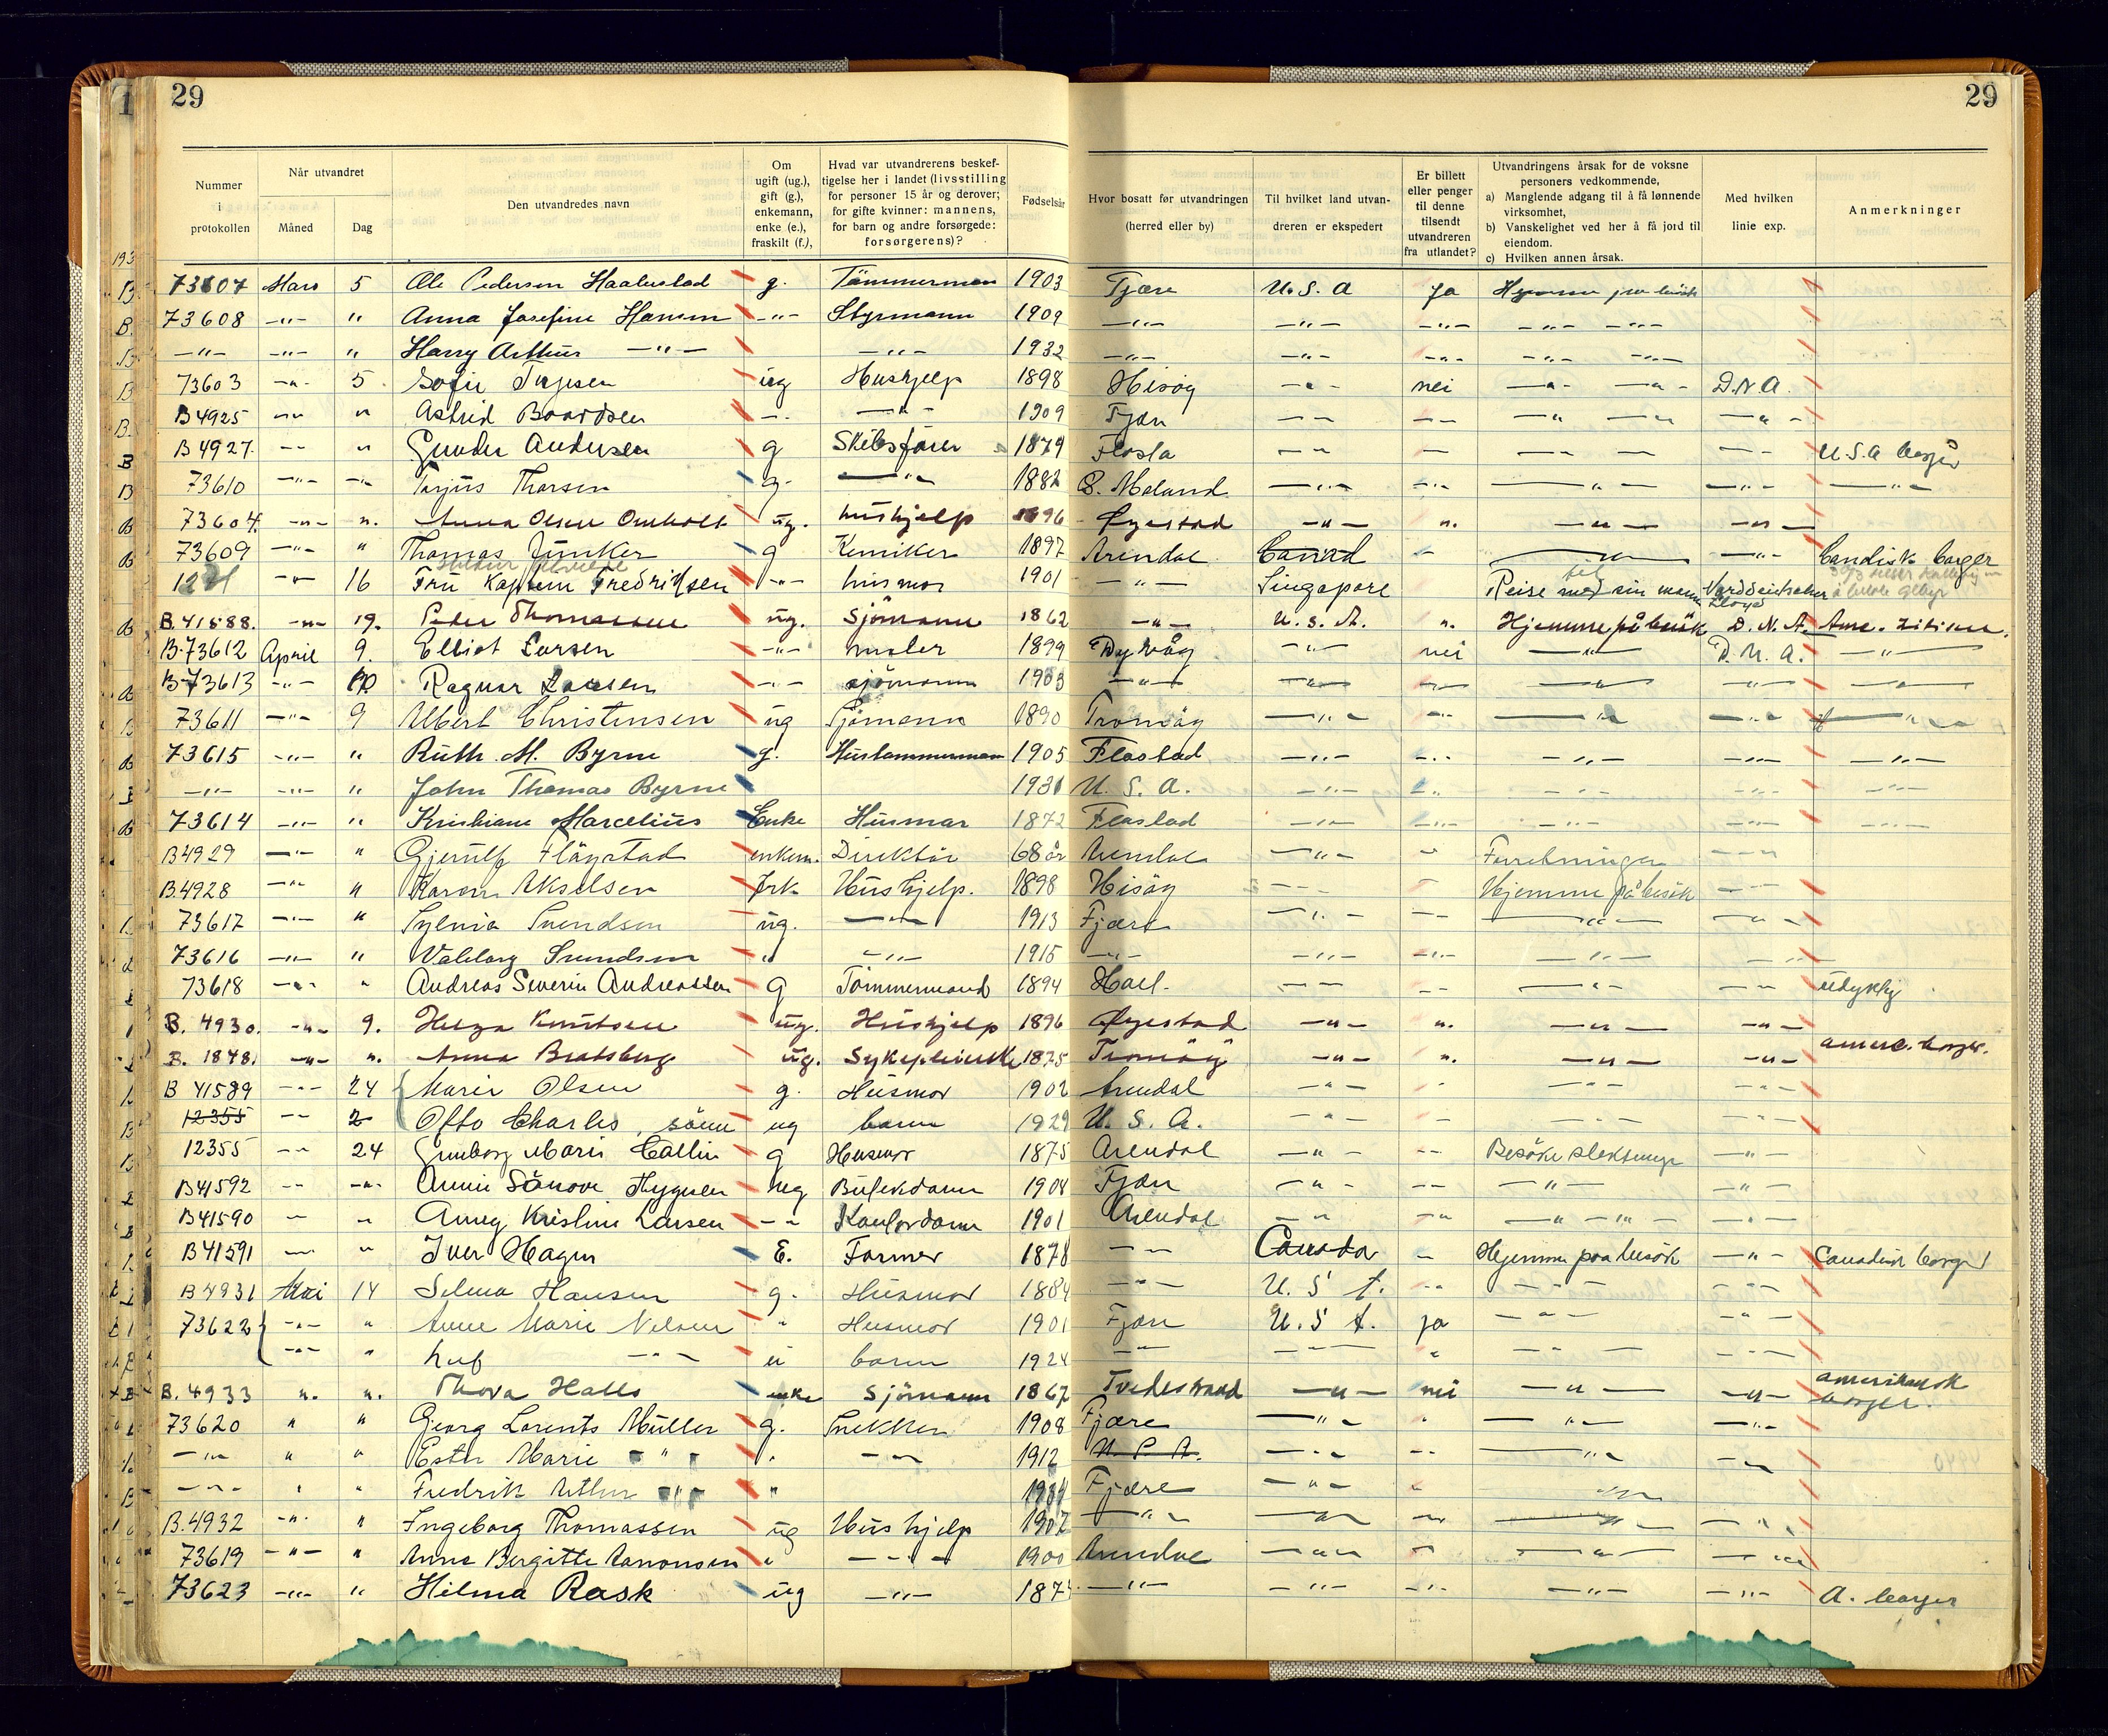 29
29
Nummer i protokollen
Når utvandret
Måned
Dag
Den utvandredes navn
Om ugift (ug.), gift (g.), enkemann, enke (e.), fraskilt (f.),
Hvad var utvandrerens beskeftigelse her i landet (livsstilling for personer 15 år og derover; for gifte kvinner: mannens, for barn og andre forsørgede: forsørgerens)?
Fødselsår
Hvor bosatt før utvandringen (herred eller by)
Til hvilket land utvandreren er ekspedert
Er billett eller penger til denne tilsendt utvandreren fra utlandet?
Utvandringens årsak for de voksne personers vedkommende,
a) Manglende adgang til å få lønnende virksomhet,
b) Vanskelighet ved her å få jord til eiendom.
c) Hvilken annen årsak.
Med hvilken linie exp.
Anmerkninger
193
73607 Mars 5 Ole Pedersen g. Tømmermann 1903 Fjære U.S.A ja
73608 -"- " Anna Josefine Hansen -"- Styrmann 1909 -"- -"- -"- -"- -"-
-"- -"- " Harry Arthur -"- -"- 1932 -"- -"- -"- -"- -"-
73603 -"- 5 Sofie Terjesen ug Hushjelp 1898 Hisøy -"- nei -"- -"- D.N.A.
B4925 -"- " Astrid Boardsen -"- -"- 1909 Fjære -"- -"- -"- -"- -"-
B4927 -"- " Gunder Andersen g Skibsfører 1879 Flosta -"- -"- -"- -"- -"- U.S.A borger
73610 -"- -"- Terjus Thorsen g. -"- 1882 Ø. Moland -"- -"- -"- -"- -"-
73604 -"- ". Anna Olsen Omholt ug. hushjelp 1896 Øyestad -"- ". -"- -"-
73609 -"- " Thomas Junker g Kemiker 1897 Arendal Canad - -"- -"- Candisk borger
-"- 16 Fru Kaptein Fredriksen -"- husmor 1901 -"- Singapore Reise til sin mann Norddeutscher Lloyd
B.41588. -"- 19. Peder Thomassen ug. Sjömann 1862 -"- U.S.A. ". Hjemme på besök D.N.A. Ame. Zitizen.
B.73612 April 9. Elliot Larsen -"- maler 1899 Dypvåg -"- nei -"- D.N.A. -"-
B-73613 -"- 10 Ragnar Larsen -"- sjömann 1903 -"- -"- -"- -"- -"- -"-
73611 -"- 9 Albert Christensen ug Sjömann 1890 Tromöy -"- -"- -"- -"- -"-
73615 -"- " Ruth M. Byrne g. Hustømmermann 1905 Flostad -"- -"- -"- -"- -"-
-"- -"- " John Thomas Byrne 1931 U.S.A. -"- -"- -"- -"- -"-
73614 -"- " Kristiane Marcelius Enke Husmor 1872 Flostad -"- -"- -"- -"- -"-
B4929 -"- " Gjerulf Fløystad enkem. Direktør 68 år Arendal -"- -"- Forretninger -"-
B.4928 -"- " Karen Akselsen frk Hushjelp. 1898 Hisøy -"- - Hjemme på besök -"-
73617 -"- " Sylvia Svendsen ug. -"- 1913 Fjære -"- -"- -"- -"-
73616 -"- " Valborg Svendsen " -"- 1915 -"- -"- -"- -"- -"-
73618 -"- " Andreas Severin Andreassen g Tömmermand 1894 -"- -"- -"- -"-
B. 4930. -"- 9. Helga Knutsen ug. Hushjelp 1896 Øyestad -"- ". -"- -"-
B. 1848. -"- ". Anna Bratsberg ug. Sykepleierske 1875 Tromöy -"- ". -"- -"- amerc. borger.
B 41589 -"- 24 Marie Olsen g. Husmor 1902 Arendal -"- - -"- -"-
12355 -"- 2 Otto Charles, sönn ug barn 1929 U.S.A. -"- - -"- -"-
12355 -"- 24 Gunborg Marie Callin g Husmor 1875 Arendal -"- -"- Besöke slektninge -"-
B41592 -"- -"- Annie Sånove Thygesen ug Butikdame 1904 Fjære -"- -"- -"- -"-
B41590 - " Anny Kristine Larsen -"- Kontordame 1901 Arendal -"- -"- -"- -"- -"-
B41591 -"- " Iver Hagen E. Farmer 1878 -"- Canada - Hjemme paa besök -"- Canadisk borger
B4931 Mai 14 Selma Hansen g. Husmor 1884 -"- U.S.A. -"- -"- -"-
73622 -"- " Anne Marie Nilsen " Husmor 1901 Fjære U.S.A. ja -"- -"-
-"- " Leif -"- " barn 1924 -"- -"- " -"- -"-
B. 4933 ". ". Thora Halls enke Sjömann 1867 Tvedestrand -"- nei -"- -"- amerikansk borger.
73620 " " Georg Lorents Müller g. Snekker 1908 Fjære -"- " -"- -"-
-"- " " Ester Marie -"- " -"- 1912 U.S.A. -"- -"- -"- -"-
-"- " " Fredrik Arthur -"- " 1934 Fjære -"- " -"-
B.4932 -"- " Ingeborg Thomassen ug Hushjelp 1907 -"- -"- -"- -"- -"-
73619 -"- " Anne Bergitte Aanonsen " -"- 1900 Arendal -"- -"- -"- -"-
73623 -"- " Hilma Rask ug -"- -"- -"- -"- -"- -"- A. borger